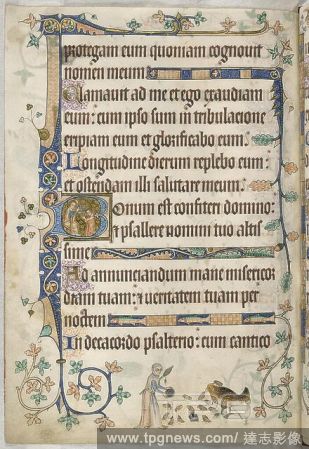 protegam eum quoniam cognouit
nomen meum
Clamauit ad me et ego exaudiam
eum: cum ipso sum in tribulacione
eripiam eum et glorificabo eum.
Longitudine dierum replebo eum:
et ostendam illi salutare meum.
Bonum est confiteri domino:
et psallere nomini tuo altis
sime
Ad annunciandum mane misericor
diam tuam: et ueritatem tuam per
noctem
In decacordo psalterio: cum cantico
www.tpgnews.com/ 達志影像